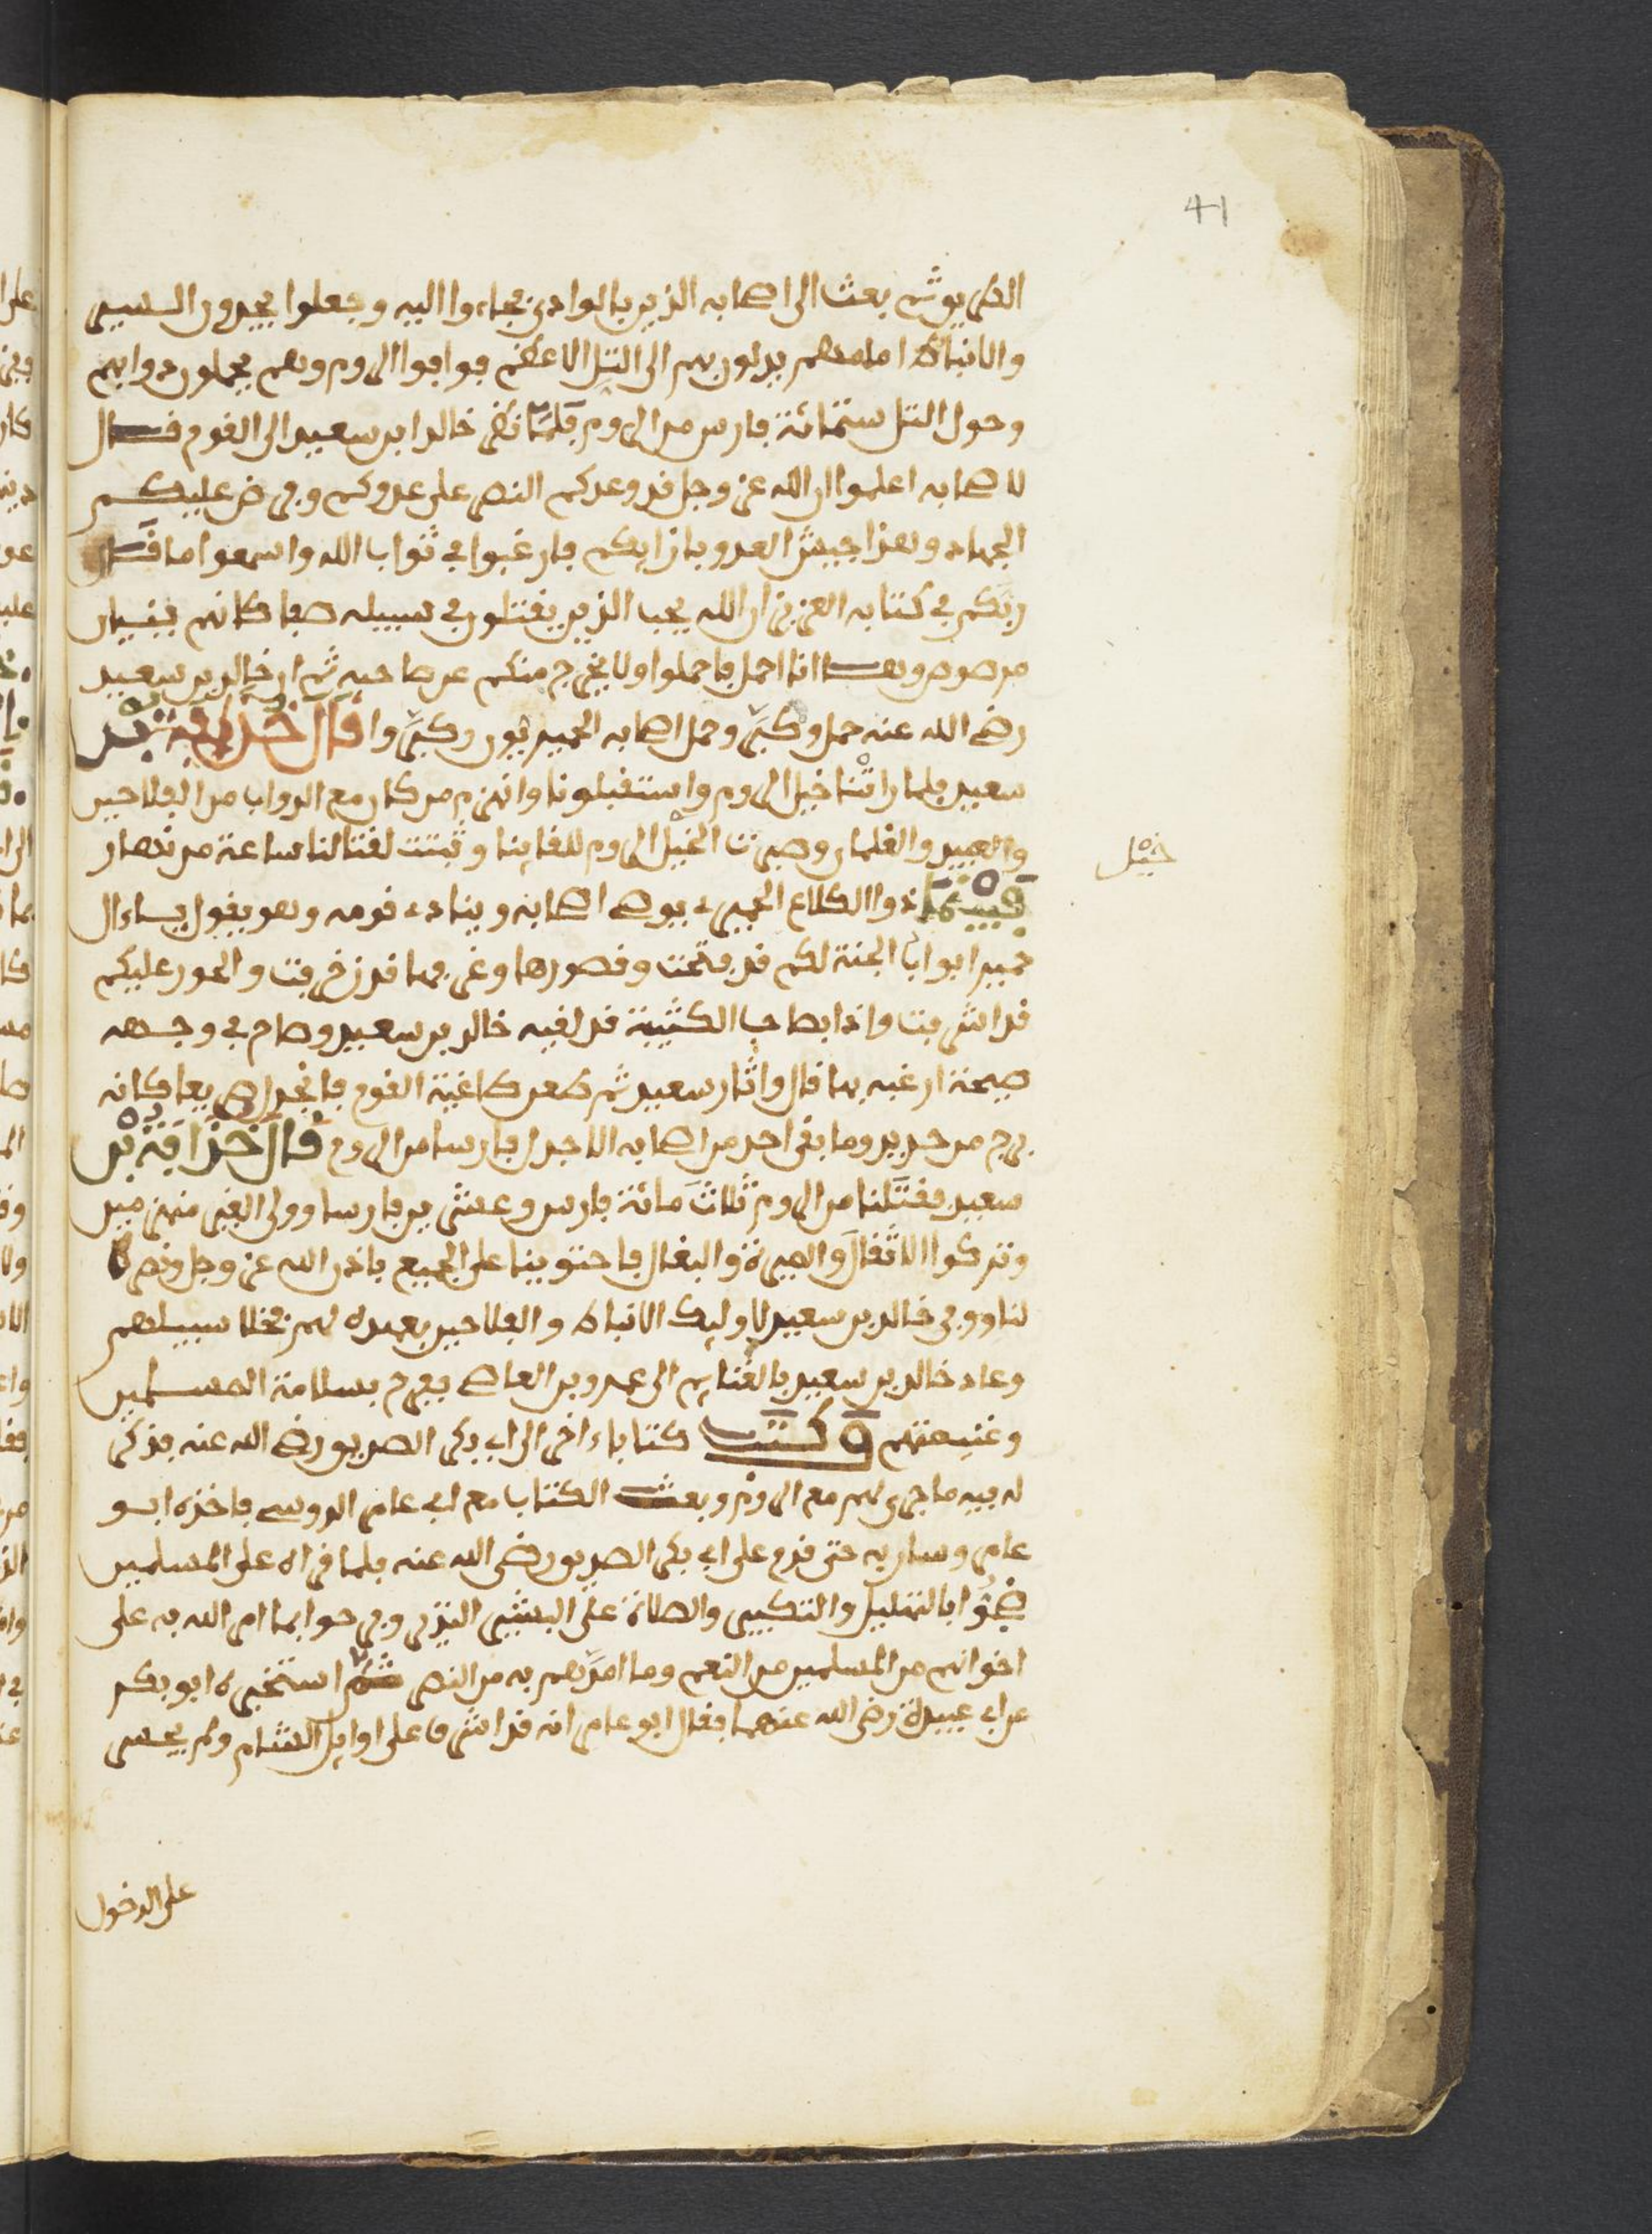 41
الطريق ثم بعث الى اصحابه الذين بالوادي فجاءوا اليه وجعلوا يجدون السير
والانباط امامهم يدلون بهم الى التل الاعظم فوافوا الروم وهم يحملون دوابهم
وحول التل ستمائة فارس من الروم فلما نظر خالد ابن سعيد الى القوم قال
لاصحابه اعلموا ان الله عز وجل قد وعدكم النصر على عدوكم وفرض عليكم
الجهاد وهذا جيش العدو بازايكم فارغبوا في ثواب الله واسمعوا ما قال
ربكم في كتابه العزيز ان الله يحب الذين يقتلون في سبيله صفا كانهم بنيان
مرصوص وها انا احمل فاحملوا ولا يخرج منكم عن صاحبه ثم ان خالد بن سعيد
رضي الله عنه حمل وكبر وحمل اصحابه الحميريون وكبروا قال حذافة بن
سعيد فلما راتنا خيل الروم واستقبلونا وانهزم من كان مع الدواب من الفلاحين
والعبيد والغلمان وصبرت الخيل الروم للقاينا وثبتت لقتالنا ساعة من نهار
خيل
فبينما ذوا الكلاع الحميري يوصي اصحابه وينادي قومه وهو يقول يا ءال
حمير ابواب الجنة لكم قد فتحت وقصورها وغرفها قد زخرفت والحور عليكم
قد اشرفت واذا بصاحب الكثيبة قد لقيه خالد بن سعيد وصاح في وجهه
صيحة ارعبه بها قال واثار سعيد ثم طعن طاغية القوم فانجدل صريعا كانه
برج من حديد وما بقى احد من اصحابه الا جدل فارسا من الروم قال حذافة بن
سعيد فقتلنا من الروم ثلاث مائة فارس وعشرين فارسا وولى الغير منهزمين
وتركوا الاثقال والميرة والبغال فاحتوينا على الجميع باذن الله عز وجل ونصره
لنا ووفى خالد بن سعيد لاوليك الانباط والفلاحين بعهده لهم فخلا سبيلهم
وعاد خالد بن سعيد بالغنايم الى عمرو بن العاصي ففرح بسلامة المسلمين
وغنيمتهم وكتب كتابا ءاخر الى ابي بكر الصديق رضي الله عنه يذكر
له فيه ما جرى لهم مع الروم وبعث الكتاب مع ابي عامر الدوسي فاخذه ابو
عامر وسار به حتى قدم على ابي بكر الصديق رضى الله عنه فلما قراه على المسلمين
ضجوا بالتهليل والتكبير والصلاة على البشير النذير وفرحوا بما امر الله به على
اخوانهم من المسلمين من النعم وما امدهم به من النصر ثم استخبره ابو بكر
عن ابي عبيدة رضى الله عنهما فقال ابو عامر انه قد اشرف على اوايل الشام ولم يجسر
على الدخول